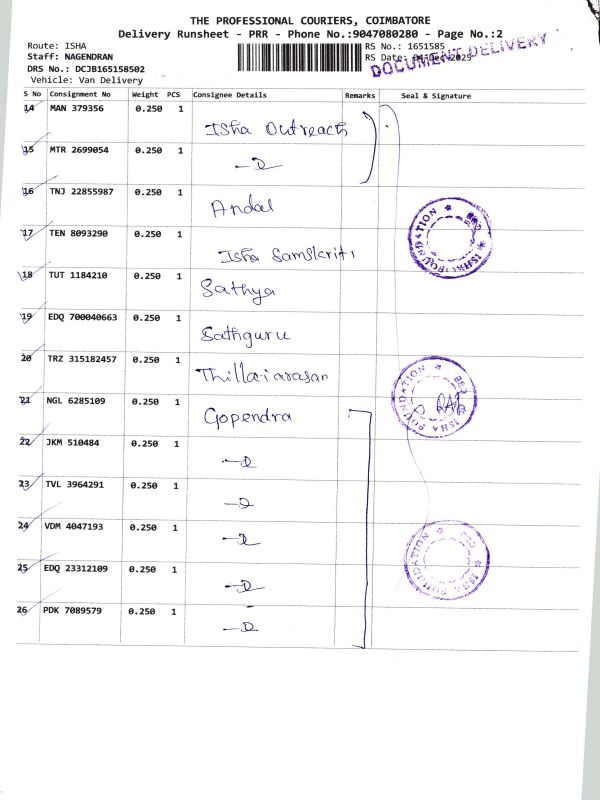 THE PROFESSIONAL COURIERS, COIMBATORE
Delivery Runsheet - PRR - Phone No.:9047080280 - Page No.:2
Route: ISHA
RS No.: 1651585
Staff: NAGENDRAN
RS Date: 04-Dec-2025
DOCUMENT DELIVERY
DRS No.: DCJB165158502
Vehicle: Van Delivery
S No Consignment No Weight PCS Consignee Details Remarks Seal & Signature
14 MAN 379356 0.250 1 Isha Outreach
15 MTR 2699054 0.250 1 —"—
16 TNJ 22855987 0.250 1 Andal
17 TEN 8093290 0.250 1 Isha Samskriti
18 TUT 1184210 0.250 1 Sathya
19 EDQ 700040663 1 Sathguru
20 TRZ 315182457 0.250 1 Thillaiarasan
21 NGL 6285109 0.250 1 Gopendra
22 JKM 510484 0.250 1
23 TVL 3964291 0.250 1
24 VDM 4047193 0.250 1
25 EDQ 23312109 0.250 1
26 PDK 7089579 0.250 1
ISHA FOUNDATION
ISHA FOUNDATION
ISHA FOUNDATION